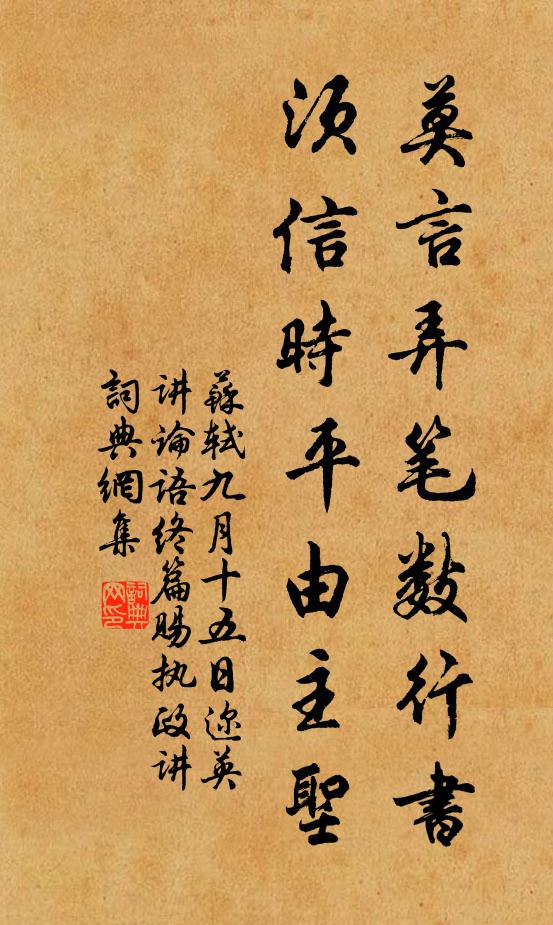 莫言弄笔数行書
须信時平由主聖
蘇軾九月十五日迩英
讲論语终篇赐执政讲
詞典網集
詞典
网印